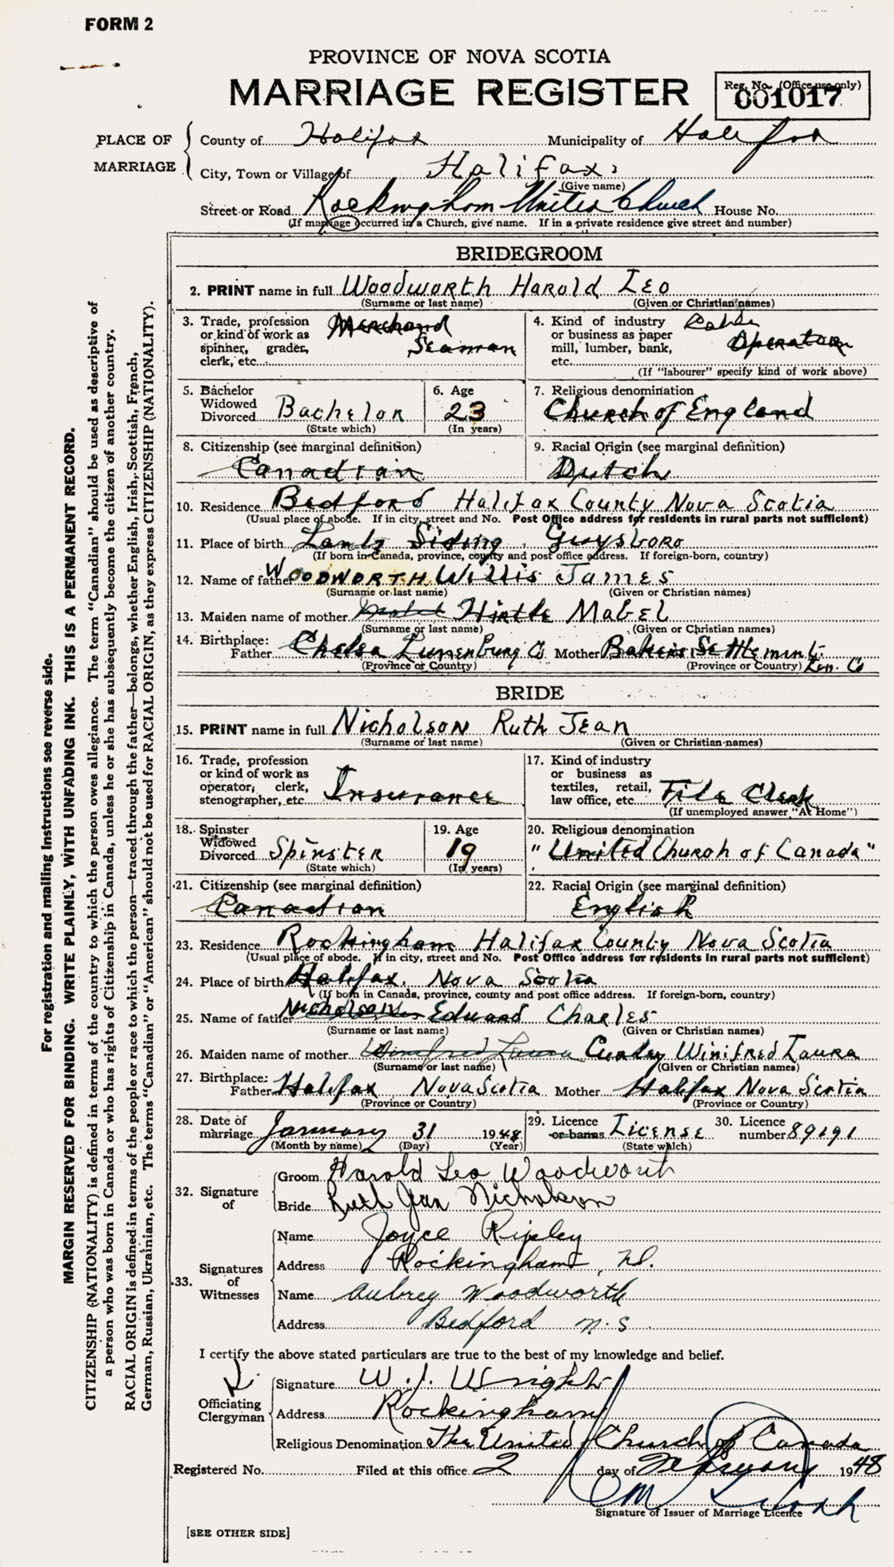 FORM 2
PROVINCE OF NOVA SCOTIA
MARRIAGE REGISTER
Reg. No. (Office use only)
001017
PLACE OF MARRIAGE
County of Halifax Municipality of Halifax
City, Town or Village of Halifax
(Give name)
Street or Road Rockingham United Church House No.
(If marriage occurred in a Church, give name. If in a private residence give street and number)
BRIDEGROOM
2. PRINT name in full Woodworth Harold Leo
(Surname or last name) (Given or Christian names)
3. Trade, profession or kind of work as spinner, grader, clerk, etc. Merchand Seaman
4. Kind of industry or business as paper mill, lumber, bank, etc. Operator
(If "labourer" specify kind of work above)
5. Bachelor Widowed Divorced Bachelor
(State which)
6. Age 23
(In years)
7. Religious denomination
Church of England
8. Citizenship (see marginal definition)
Canadian
9. Racial Origin (see marginal definition)
Dutch
10. Residence Bedford Halifax County Nova Scotia
(Usual place of abode. If in city, street and No. Post Office address for residents in rural parts not sufficient)
11. Place of birth Lantz Siding, Guysboro
(If born in Canada, province, county and post office address. If foreign-born, country)
12. Name of father WOODWORTH Willis James
(Surname or last name) (Given or Christian names)
13. Maiden name of mother Hirtle Mabel
(Surname or last name) (Given or Christian names)
14. Birthplace: Father Chelsa Lunenburg Co Mother Bakers Settlemint Lun. Co
(Province or Country) (Province or Country)
BRIDE
15. PRINT name in full Nicholson Ruth Jean
(Surname or last name) (Given or Christian names)
16. Trade, profession or kind of work as operator, clerk, stenographer, etc. Insurance
17. Kind of industry or business as textiles, retail, law office, etc. File Clerk
(If unemployed answer "At Home")
18. Spinster Widowed Divorced Spinster
(State which)
19. Age 19
(In years)
20. Religious denomination
"United Church of Canada"
21. Citizenship (see marginal definition)
Canadian
22. Racial Origin (see marginal definition)
English
23. Residence Rockingham Halifax County Nova Scotia
(Usual place of abode. If in city, street and No. Post Office address for residents in rural parts not sufficient)
24. Place of birth Halifax, Nova Scotia
(If born in Canada, province, county and post office address. If foreign-born, country)
25. Name of father Nicholson Edward Charles
(Surname or last name) (Given or Christian names)
26. Maiden name of mother Winifred Laura Winifred Laura
(Surname or last name) (Given or Christian names)
27. Birthplace: Father Halifax Nova Scotia Mother Halifax Nova Scotia
(Province or Country) (Province or Country)
28. Date of marriage January 31 1948
(Month by name) (Day) (Year)
29. Licence or banns License
(State which)
30. Licence number 89191
32. Signature of
Groom Harold Leo Woodworth
Bride Ruth Jean Nicholson
33. Signatures of Witnesses
Name Joyce Ripley
Address Rockingham, N.S.
Name Aubrey Woodworth
Address Bedford N.S
I certify the above stated particulars are true to the best of my knowledge and belief.
Officiating Clergyman
Signature W. J. Wright
Address Rockingham
Religious Denomination The United Church of Canada
Registered No. Filed at this office 2 day of February 1948
Signature of Issuer of Marriage Licence
[SEE OTHER SIDE]
For registration and mailing instructions see reverse side.
MARGIN RESERVED FOR BINDING. WRITE PLAINLY, WITH UNFADING INK. THIS IS A PERMANENT RECORD.
CITIZENSHIP (NATIONALITY) is defined in terms of the country to which the person owes allegiance. The term "Canadian" should be used as descriptive of
a person who was born in Canada or who has rights of Citizenship in Canada, unless he or she has subsequently become the citizen of another country.
RACIAL ORIGIN is defined in terms of the people or race to which the person—traced through the father—belongs, whether English, Irish, Scottish, French,
German, Russian, Ukrainian, etc. The terms "Canadian" or "American" should not be used for RACIAL ORIGIN, as they express CITIZENSHIP (NATIONALITY).